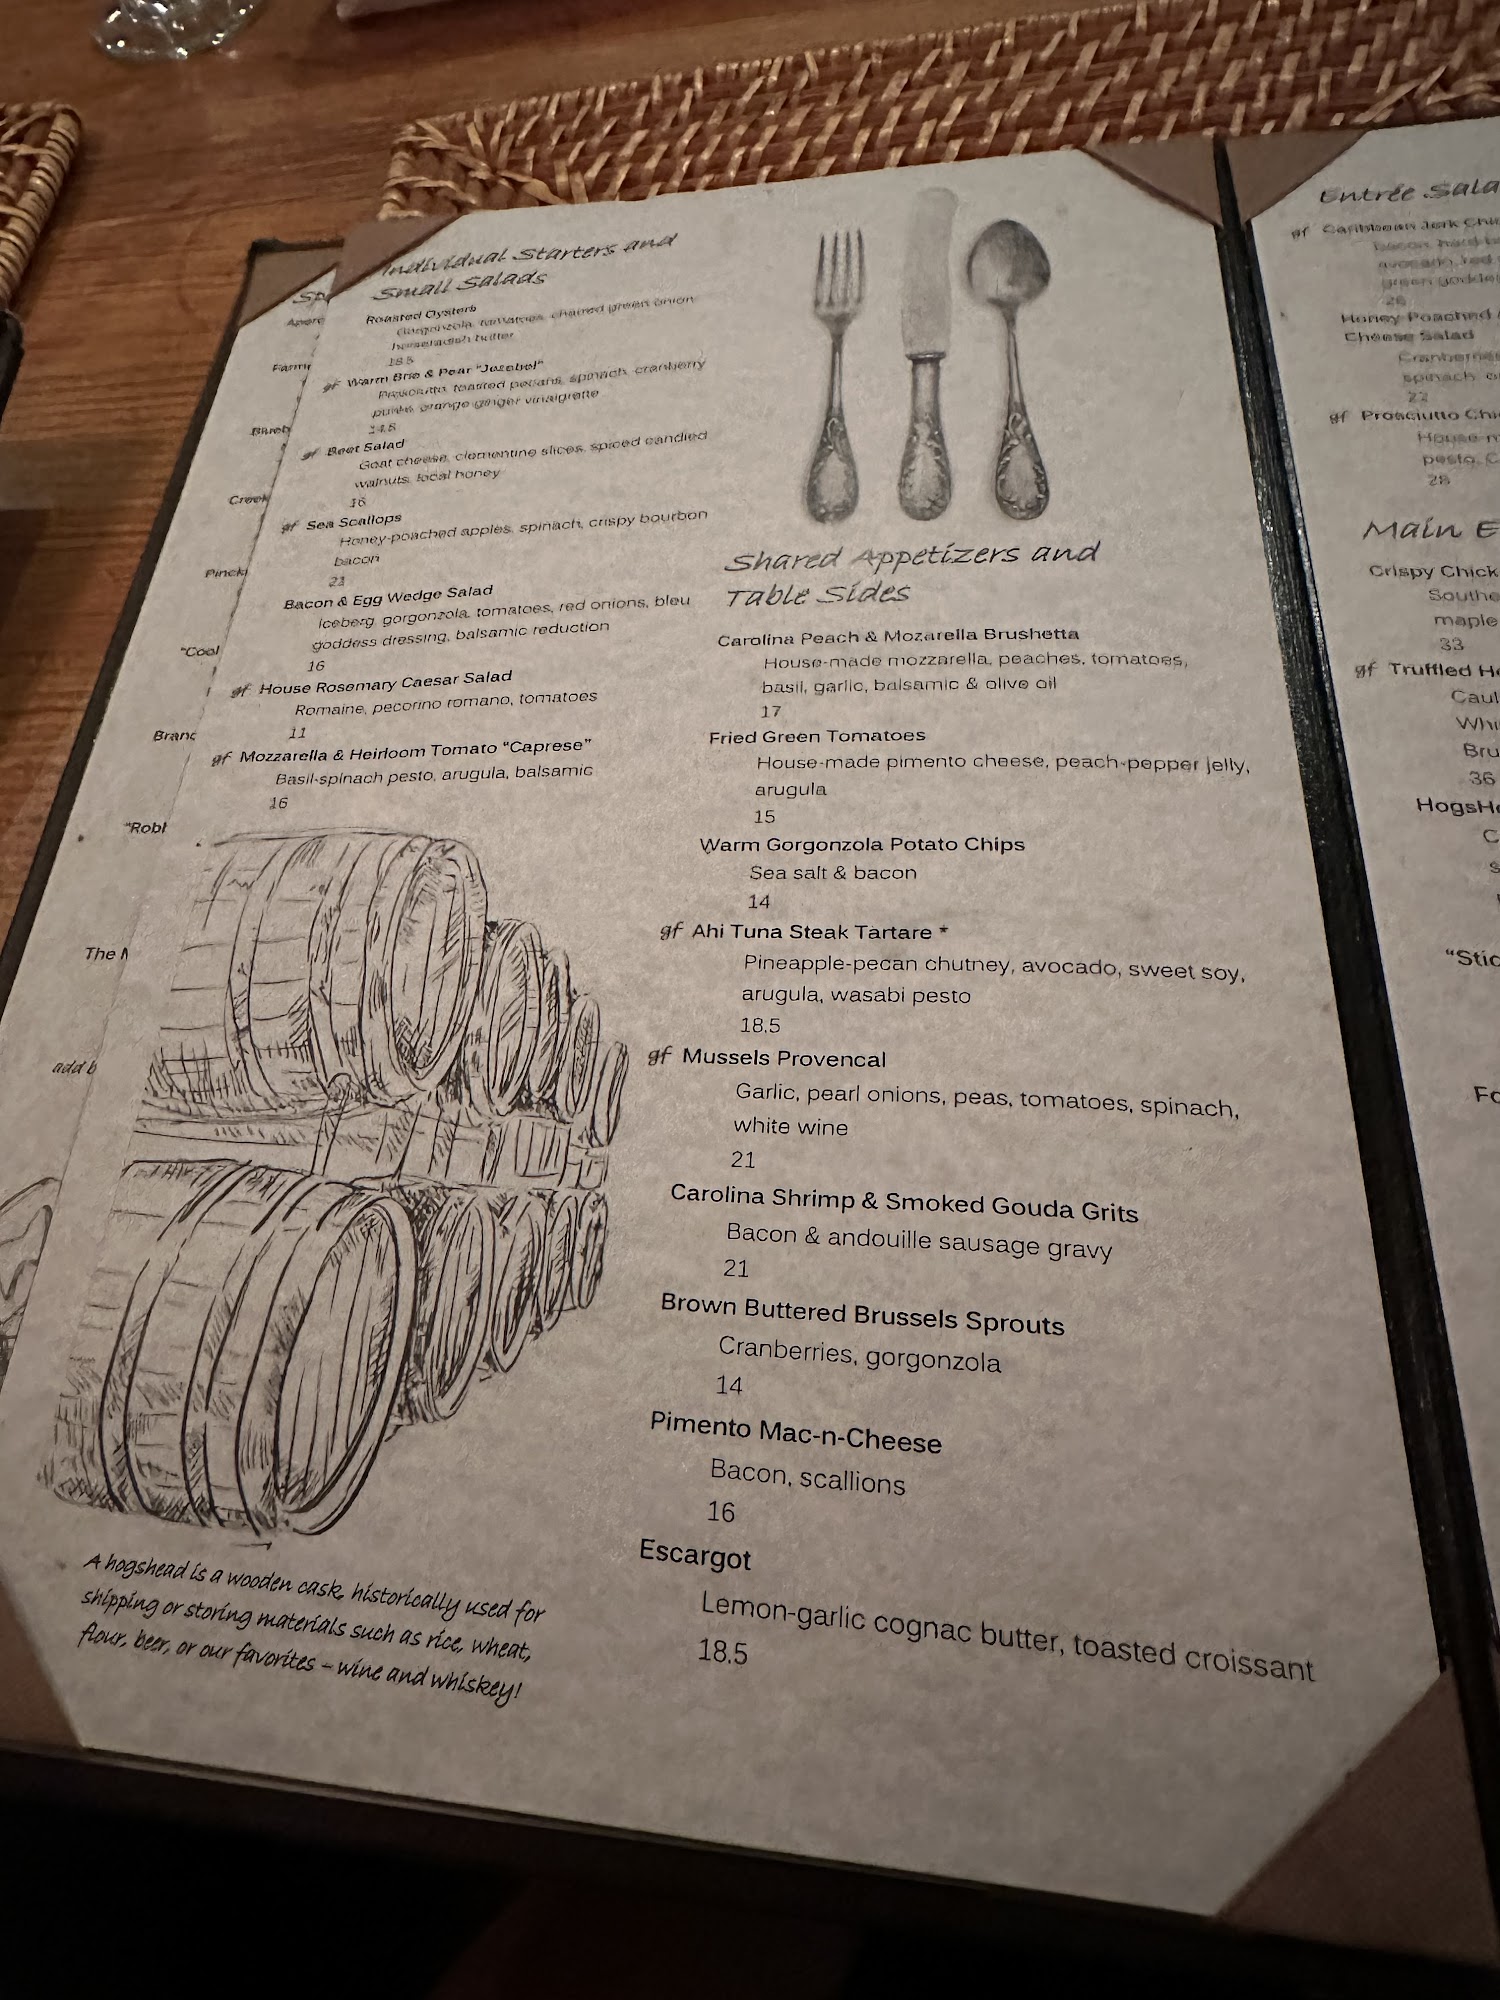 Individual Starters and
Small Salads
Roasted Oysters
Gorgonzola, tomatoes, charred green onion
horseradish butter
18.5
gf Warm Brie & Pear "Jezebel"
Prosciutto, toasted pecans, spinach, cranberry
punks, orange-ginger vinaigrette
14.5
gf Beet Salad
Goat cheese, clementine slices, spiced candied
walnuts, local honey
16
gf Sea Scallops
Honey-poached apples, spinach, crispy bourbon
bacon
21
Bacon & Egg Wedge Salad
Iceberg, gorgonzola, tomatoes, red onions, bleu
goddess dressing, balsamic reduction
16
gf House Rosemary Caesar Salad
Romaine, pecorino romano, tomatoes
11
gf Mozzarella & Heirloom Tomato “Caprese”
Basil-spinach pesto, arugula, balsamic
16
A hogshead is a wooden cask, historically used for
shipping or storing materials such as rice, wheat,
flour, beer, or our favorites – wine and whiskey!
Shared Appetizers and
Table Sides
Carolina Peach & Mozarella Brushetta
House-made mozzarella, peaches, tomatoes,
basil, garlic, balsamic & olive oil
17
Fried Green Tomatoes
House-made pimento cheese, peach-pepper jelly,
arugula
15
Warm Gorgonzola Potato Chips
Sea salt & bacon
14
gf Ahi Tuna Steak Tartare *
Pineapple-pecan chutney, avocado, sweet soy,
arugula, wasabi pesto
18.5
gf Mussels Provencal
Garlic, pearl onions, peas, tomatoes, spinach,
white wine
21
Carolina Shrimp & Smoked Gouda Grits
Bacon & andouille sausage gravy
21
Brown Buttered Brussels Sprouts
Cranberries, gorgonzola
14
Pimento Mac-n-Cheese
Bacon, scallions
16
Escargot
Lemon-garlic cognac butter, toasted croissant
18.5
Entrée Sala
gf Caribbean Jerk Chi
bacon, hard-b
avocado, red
green godde
26
Honey Poached
Cheese Salad
Cranberries
spinach,
gf Prosciutto Chi
House-m
pesto, C
28
Main E
Crispy Chick
Southe
maple
33
gf Truffled H
Caul
Whi
Bru
36
HogsH
C
s
“Stic
Fo